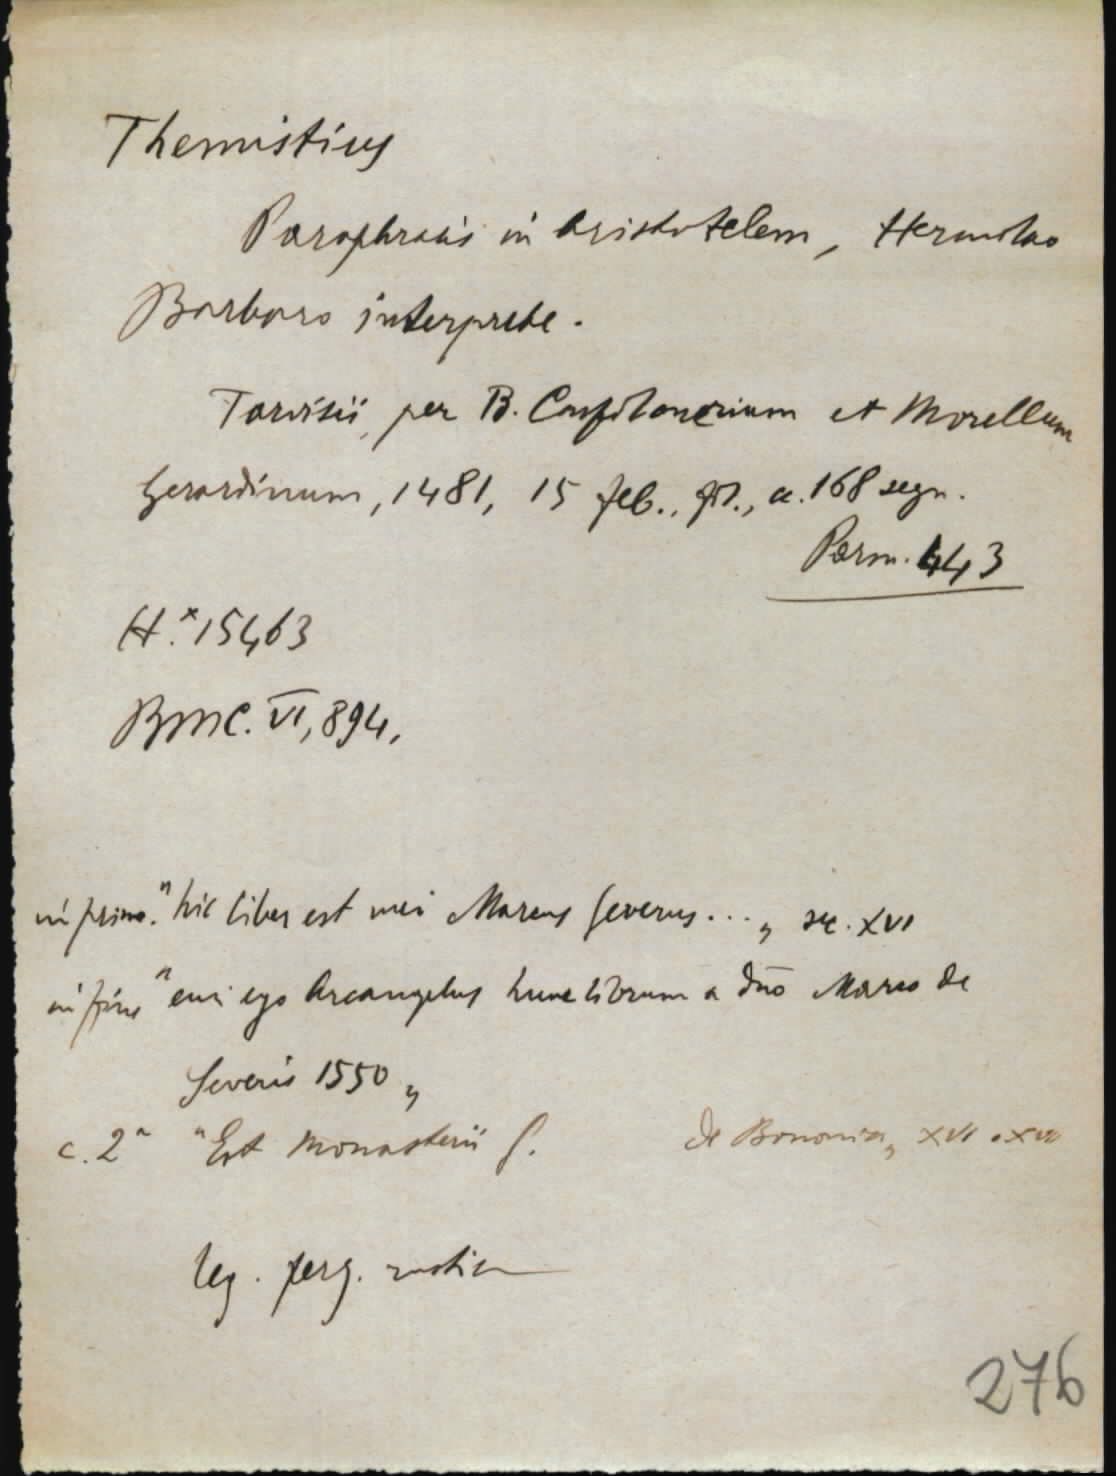 Themistius
Paraphrasis in Aristotelem, Hermolao
Barbaro interprete.
Tarvisii, per B. Confalonerium et Morellum
Gerardinum, 1481, 15 feb., fol., cc. 168 segn.
Parm. 443
H.* 15463
BMC. VI, 894,
in princ. "hic liber est mei Marcus Severus... „ sec. XVI
in fine "emi ego Arcangelus hunc librum a dño Marco de
Severis 1550 „
c. 2a "Est Monasterii S. de Bononia„ XVI o XVII
leg. perg. rustica
276